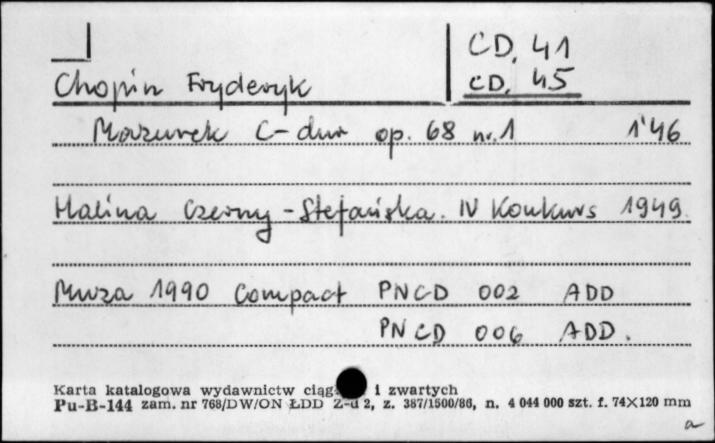 CD. 41
Chopin Fryderyk CD. 45
Mazurek C-dur op. 68 nr. 1 1'46
Halina Czerny-Stefańska. IV Konkurs 1949.
Muza 1990 Compact PNCD 002 ADD
PNCD 006 ADD.
Karta katalogowa wydawnictw ciąg i zwartych
Pu-B-144 zam. nr 768/DW/ON ŁDD Z-d 2, z. 387/1500/86, n. 4 044 000 szt. f. 74X120 mm
a